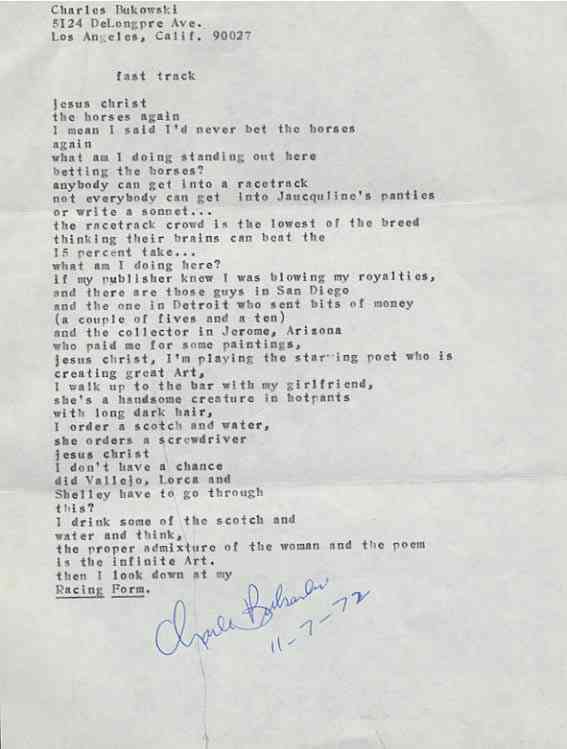 Charles Bukowski
5124 DeLongpre Ave.
Los Angeles, Calif. 90027
fast track
jesus christ
the horses again
I mean I said I'd never bet the horses
again
what am I doing standing out here
betting the horses?
anybody can get into a racetrack
not everybody can get into Jaucquline's panties
or write a sonnet...
the racetrack crowd is the lowest of the breed
thinking their brains can beat the
15 percent take...
what am I doing here?
if my publisher knew I was blowing my royalties,
and there are those guys in San Diego
and the one in Detroit who sent bits of money
(a couple of fives and a ten)
and the collector in Jerome, Arizona
who paid me for some paintings,
jesus christ, I'm playing the starving poet who is
creating great Art,
I walk up to the bar with my girlfriend,
she's a handsome creature in hotpants
with long dark hair,
I order a scotch and water,
she orders a screwdriver
jesus christ
I don't have a chance
did Vallejo, Lorca and
Shelley have to go through
this?
I drink some of the scotch and
water and think,
the proper admixture of the woman and the poem
is the infinite Art.
then I look down at my
Racing Form.
Charles Bukowski
11-7-72